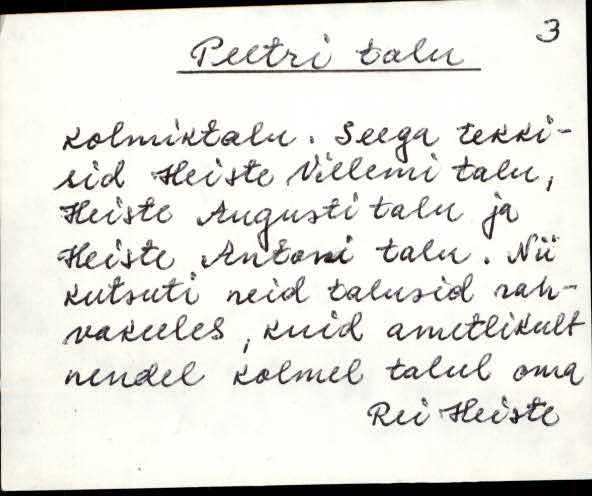 3
Peetri talu
kolmiktalu. Seega tekki-
sid Heiste Villemi talu,
Heiste Augusti talu ja
Heiste Antoni talu. Nii
kutsuti neid talusid rah-
vakeeles, kuid ametlikult
nendel kolmel talul oma
Rei Heiste